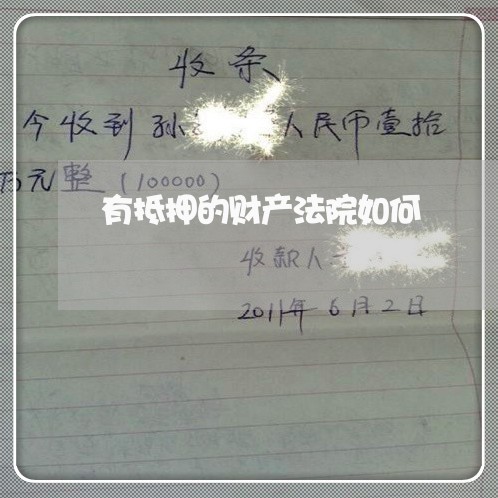 收条
今收到孙 人民币壹拾
万元整（100000）
有抵押的财产法院如何
收款人
2011年6月2日